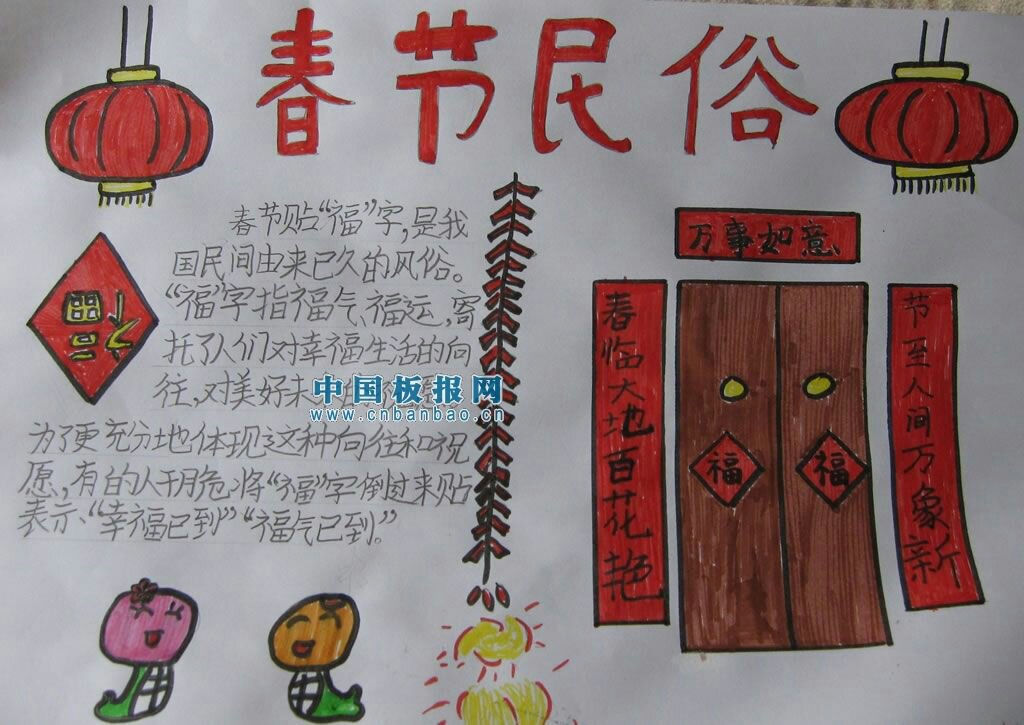 春节民俗
春节贴“福”字,是我
国民间由来已久的风俗。
“福”字指福气、福运,寄
托了人们对幸福生活的向
往,对美好未
中国板报网
www.cnbanbao.cn
为了更充分地体现这种向往和祝
愿,有的人干脆将“福”字倒过来贴
表示:“幸福已到”“福气已到”。
福
万事如意
春临大地百花艳
福
福
节至人间万象新